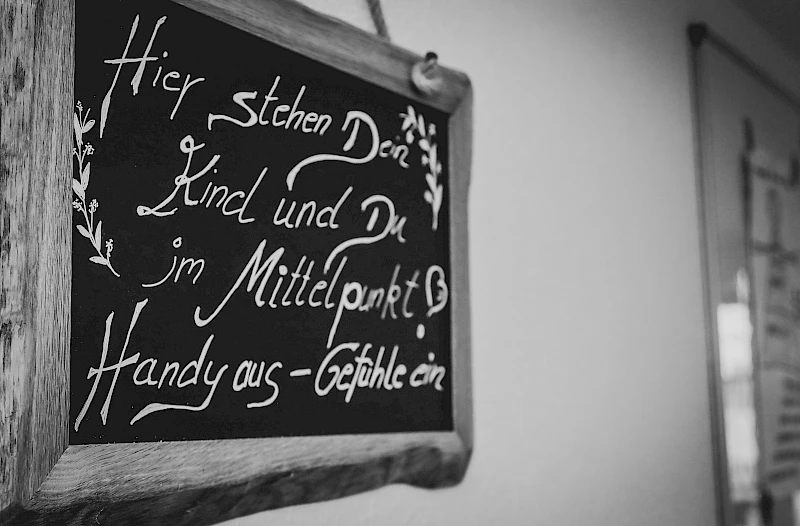 Hier stehen Dein
Kind und Du
im Mittelpunkt
Handy aus - Gefühle ein